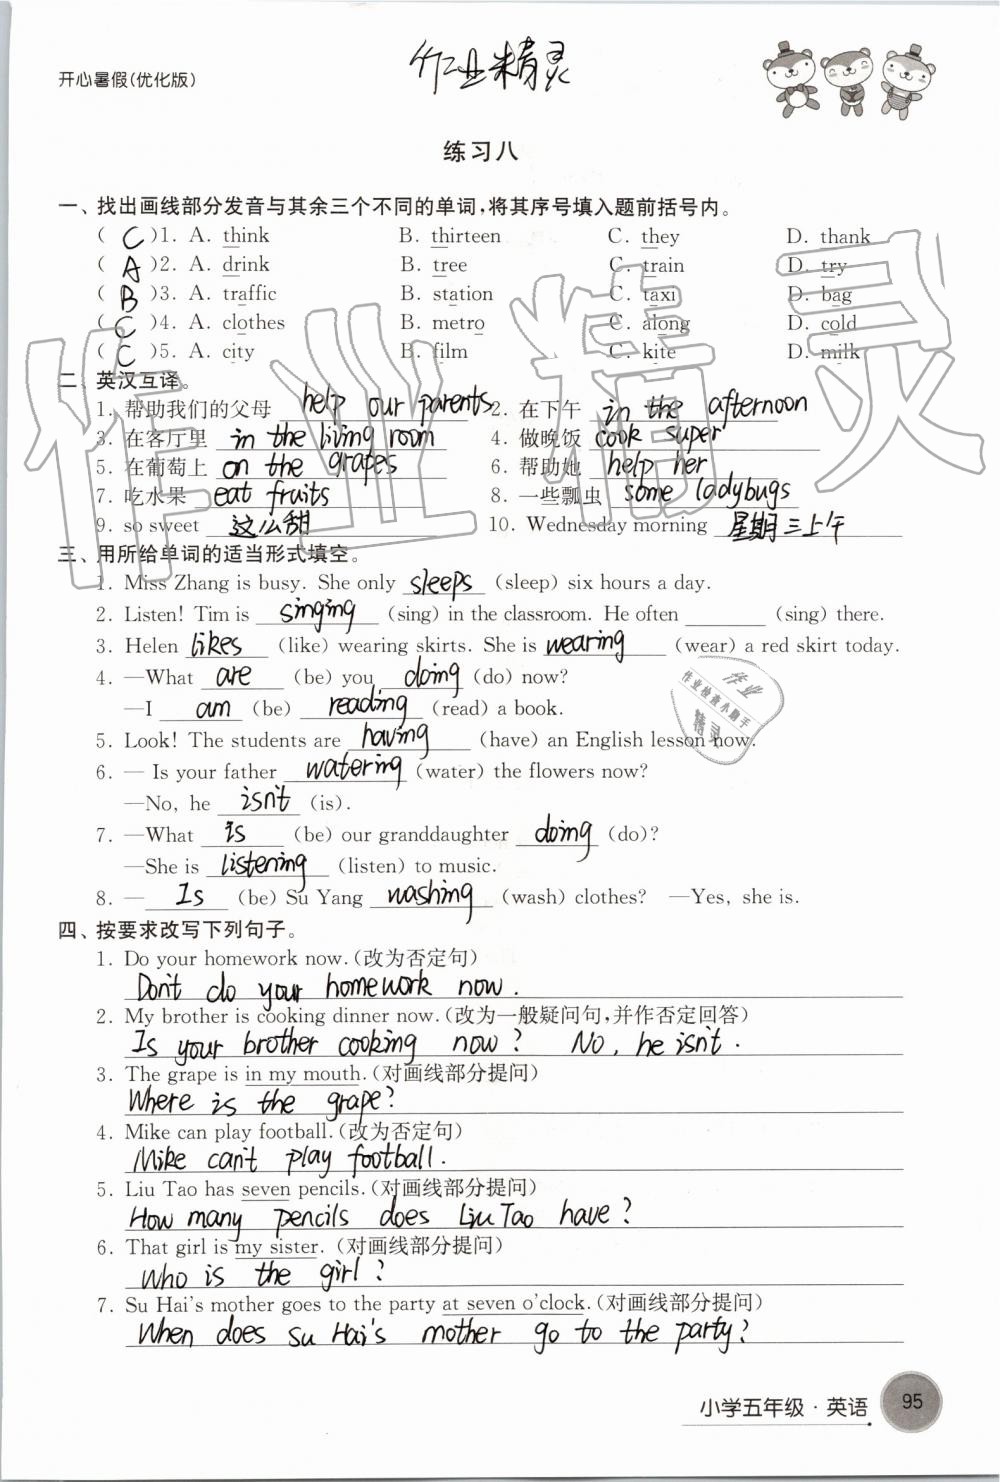 开心暑假(优化版)
作业精灵
练习八
一、找出画线部分发音与其余三个不同的单词,将其序号填入题前括号内。
( C )1. A. think B. thirteen C. they D. thank
( A )2. A. drink B. tree C. train D. try
( B )3. A. traffic B. station C. taxi D. bag
( C )4. A. clothes B. metro C. along D. cold
( C )5. A. city B. film C. kite D. milk
二、英汉互译。
1. 帮助我们的父母 help our parents 2. 在下午 in the afternoon
3. 在客厅里 in the living room 4. 做晚饭 cook super
5. 在葡萄上 on the grapes 6. 帮助她 help her
7. 吃水果 eat fruits 8. 一些瓢虫 some ladybugs
9. so sweet 这么甜 10. Wednesday morning 星期三上午
三、用所给单词的适当形式填空。
1. Miss Zhang is busy. She only sleeps (sleep) six hours a day.
2. Listen! Tim is singing (sing) in the classroom. He often ________ (sing) there.
3. Helen likes (like) wearing skirts. She is wearing (wear) a red skirt today.
4. —What are (be) you doing (do) now?
—I am (be) reading (read) a book.
5. Look! The students are having (have) an English lesson now.
6. — Is your father watering (water) the flowers now?
—No, he isn't (is).
7. —What is (be) our granddaughter doing (do)?
—She is listening (listen) to music.
8. — Is (be) Su Yang washing (wash) clothes? —Yes, she is.
四、按要求改写下列句子。
1. Do your homework now.(改为否定句)
Don't do your homework now.
2. My brother is cooking dinner now.(改为一般疑问句,并作否定回答)
Is your brother cooking now? No, he isn't.
3. The grape is in my mouth.(对画线部分提问)
Where is the grape?
4. Mike can play football.(改为否定句)
Mike can't play football.
5. Liu Tao has seven pencils.(对画线部分提问)
How many pencils does Liu Tao have?
6. That girl is my sister. (对画线部分提问)
Who is the girl?
7. Su Hai's mother goes to the party at seven o'clock.(对画线部分提问)
When does Su Hai's mother go to the party?
小学五年级·英语 95
作业精灵
作业
作业检查小助手
精灵